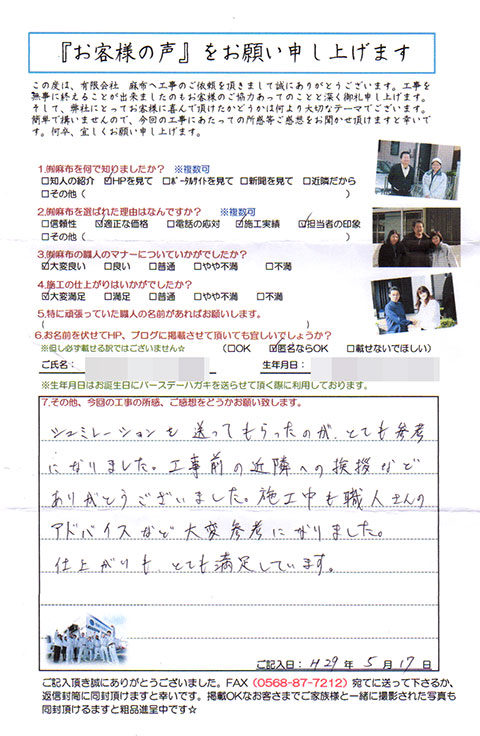 『お客様の声』をお願い申し上げます
この度は、有限会社 麻布へ工事のご依頼を頂きまして誠にありがとうございます。工事を
無事に終えることが出来ましたのもお客様のご協力あってのことと深く御礼申し上げます。
そして、弊社にとってお客様に喜んで頂けたかどうかは何より大切なテーマでございます。
簡単で構いませんので、今回の工事にあたっての所感等ご感想をお聞かせ頂けますと幸いで
す。何卒、宜しくお願い申し上げます。
1.㈲麻布を何で知りましたか? ※複数可
□知人の紹介 ☑HPを見て □ポータルサイトを見て □新聞を見て □近隣だから
□その他( )
2.㈲麻布を選ばれた理由はなんですか? ※複数可
□信頼性 ☑適正な価格 □電話の応対 ☑施工実績 ☑担当者の印象
□その他( )
3.㈲麻布の職人のマナーについていかがでしたか?
☑大変良い □良い □普通 □やや不満 □不満
4.施工の仕上がりはいかがでしたか?
☑大変満足 □満足 □普通 □やや不満 □不満
5.特に頑張っていた職人の名前があればお願いします。
( )
6.お名前を伏せてHP、ブログに掲載させて頂いても宜しいでしょうか?
※但し必ず載せる訳ではございません☆ (□OK ☑匿名ならOK □載せないでほしい)
ご氏名: 生年月日:
※生年月日はお誕生日にバースデーハガキを送らせて頂く際に利用しております。
7.その他、今回の工事の所感、ご感想をどうかお願い致します。
シュミレーションを送ってもらったのが、とても参考
になりました。工事前の近隣への挨拶など
ありがとうございました。施工中も職人さんの
アドバイスなど大変参考になりました。
仕上がりも、とても満足しています。
ご記入日: H29 年 5 月 17 日
ご記入頂き誠にありがとうございました。FAX(0568-87-7212)宛てに送って下さるか、
返信封筒に同封頂けますと幸いです。掲載OKなお客さまでご家族様と一緒に撮影された写真も
同封頂けるますと粗品進呈中です☆